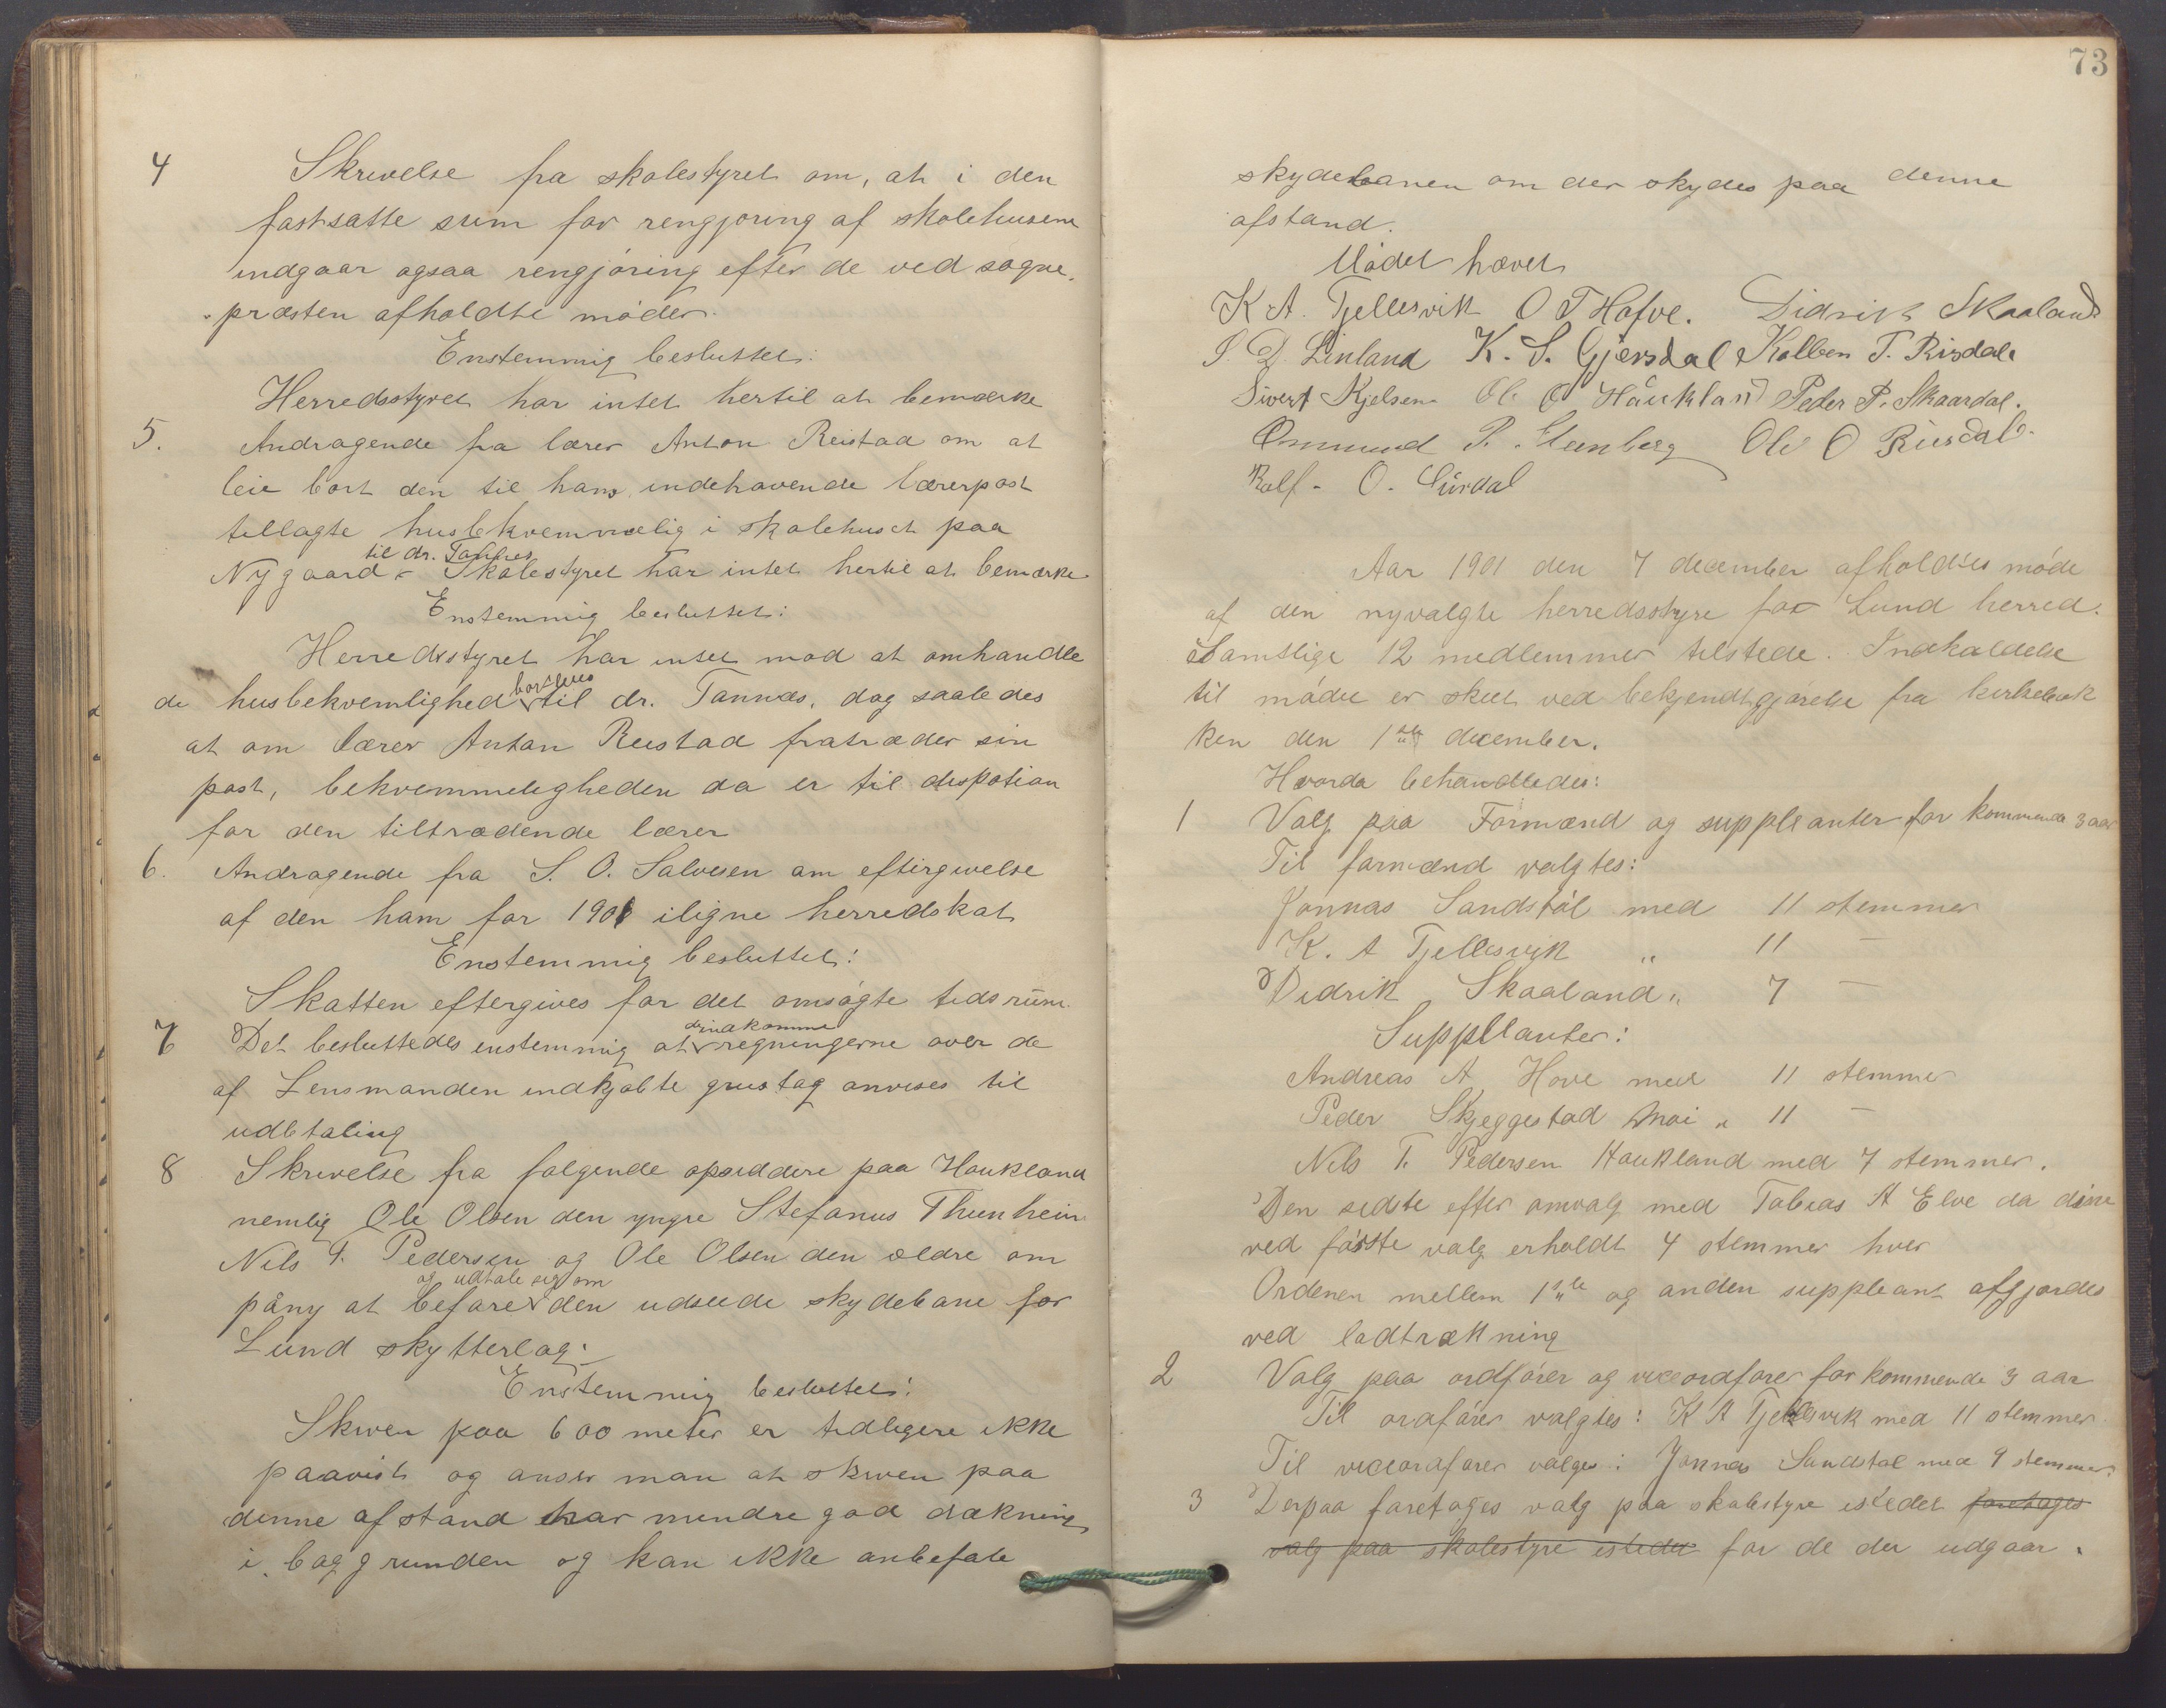 4 Skrivelse fra skolestyret om, at i den
fastsatte sum for rengjøring af skolehusene
indgaar ogsaa rengjøring efter de ved sogne-
præsten afholdte møder.
Enstemmig besluttet:
Herredsstyret har intet hertil at bemærke
5. Andragende fra lærer Anton Reistad om at
leie bort den til hans indehavende lærerpost
tillagte husbekvemmelig i skolehuset paa
til dr. Tannæs
Nygaard - Skolestyret har intet hertil at bemærke
Enstemmig besluttet:
Herredsstyret har intet mod at omhandle
bortleies
de husbekvemlighed til dr. Tannæs, dog saaledes
at om lærer Antan Reistad fratræder sin
post, bekvemmeligheden da er til dispotion
for den tiltrædende lærer
6. Andragende fra S. O. Salvesen om eftergivelse
af den ham for 1901 iligne herredskat
Enstemmig besluttet:
Skatten eftergives for det omsøgte tidsrum.
indkomme
7 Det besluttedes enstemmig at regningerne over de
af Lensmanden indkjøbte grustag anvises til
udbtaling
8 Skrivelse fra følgende opsiddere paa Haukland
nemlig Ole Olsen den yngre Stefanus Thunheim
Nils T. Pedersen og Ole Olsen den ældre om
og udtale sig om
påny at befare den udseede skydebane for
Lund skytterlag:
Enstemmig besluttet:
Skiven paa 600 meter er tidligere ikke
paavist og anser man at skiven paa
denne afstand har mindre god dækning
i baggrunden og kan ikke anbefale
73
skydebanen om der skydes paa denne
afstand.
Mødet hævet
K A. Tjellesvik O T Hofve. Didrik Skaaland
S. D. Linland K. S. Gjersdal Kolben T. Risdal
Sivert Kjelsen Ole O Håukland Peder P. Skaardal.
Ommund P. Steenberg Ole O Rusdal.
Rolf. O. Surdal
Aar 1901 den 7 december afholdtes møde
af den nyvalgte herredsstyre for Lund herred.
Samtlige 12 medlemmer tilstede. Indkaldelse
til mødet er skeet ved bekjendtgjørelse fra kirkebak
ken den 1ste december.
Hvorda behandledes:
1 Valg paa Formænd og suppleanter for kommende 3 aar
Til formænd valgtes:
Jonnas Sandstøl med 11 stemmer
K. A Tjellesvik " 11 —
Didrik Skaaland " 7 —
Suppllanter:
Andreas A Hove med 11 stemmer
Peder Skjeggestad Moi " 11 —
Nils T. Pedersen Haukland med 7 stemmer.
Den sidste efter omvalg med Tobias A Elve da disse
ved første valg erholdt 4 stemmer hver
Ordenen mellem 1ste og anden suppleant afgjordes
ved lodtrækning
2 Valg paa ordfører og viceordfører for kommende 3 aar
Til ordfører valgtes: K A Tjellesvik med 11 stemmer
Til viceordfører valges: Jonnas Sandstøl med 9 stemmer.
3 Derpaa foretages valg paa skolestyre istedet foretages
valg paa skolestyre istedet for de der udgaar.